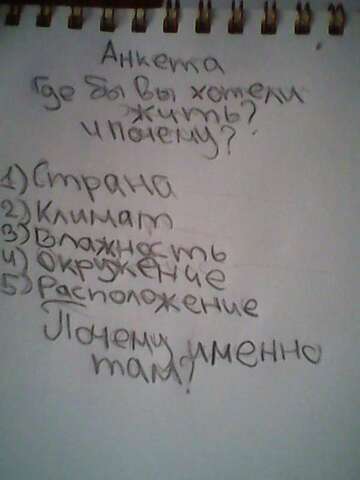 Анкета
Где бы вы хотели
жить?
и почему?
1) Страна
2) Климат
3) Влажность
4) Окружение
5) Расположение
Почему именно
там?